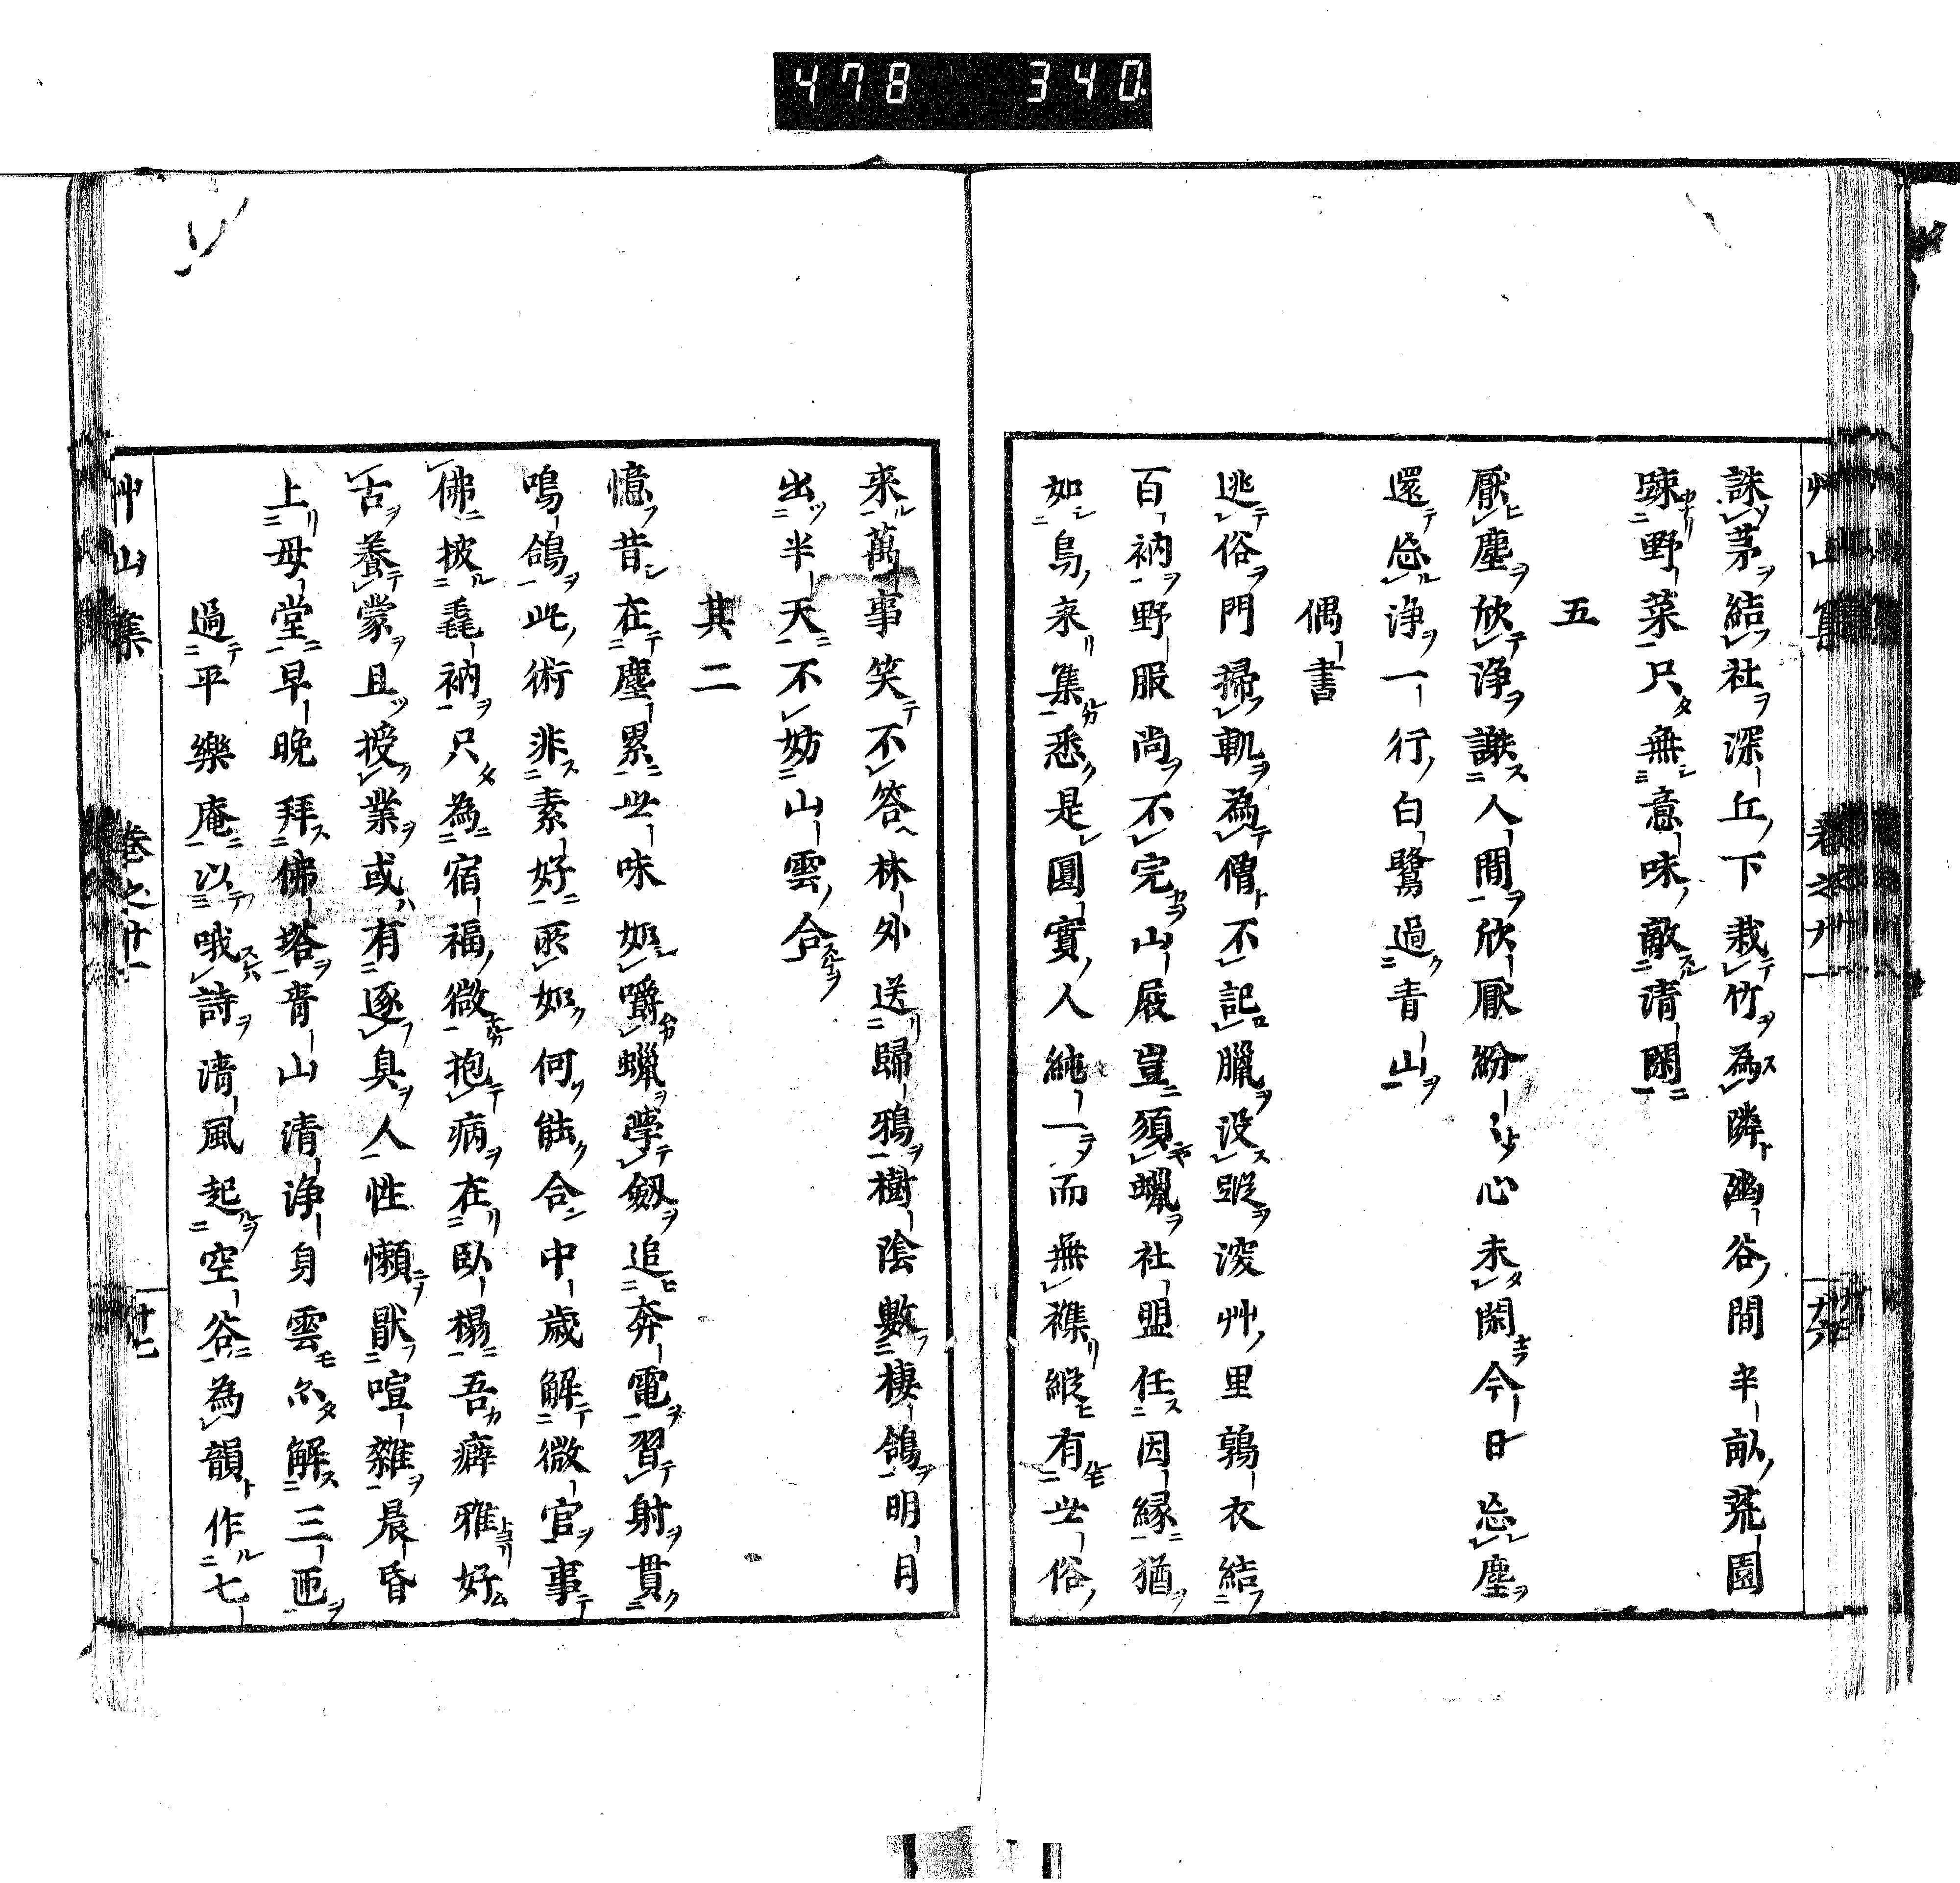 478 340
艸山集 卷之廿一 廿六
誅茅結社深丘下栽竹為隣幽谷間半畝荒園
踈野菜只無意味敵清閑
五
厭塵欣淨謝人間欣厭紛〻心未閑今日忘塵
還忘淨一行白鷺過青山
偶書
逃俗門掃軌為僧不記臘没蹤深艸里鶉衣結
百衲野服尚不完山屐豈須蠟社盟任因縁猶
如鳥来集悉是圓實人純一而無襍縱有世俗
来萬事笑不答林外送歸鴉樹陰數棲鴿明月
出半天不妨山雲合
其二
憶昔在塵累世味如嚼蠟學劔追奔電習射貫
鳴鴿此術非素好所如何能合中歳解微官事
佛披毳衲只為宿福微抱病在臥榻吾癖雅好
古養蒙且授業或有逐臭人性懶厭喧雜晨昏
上母堂早晚拜佛塔青山清淨身雲尓解三匝
過平樂庵以哦詩清風起空谷為韻作七
艸山集 卷之廿一 廿七